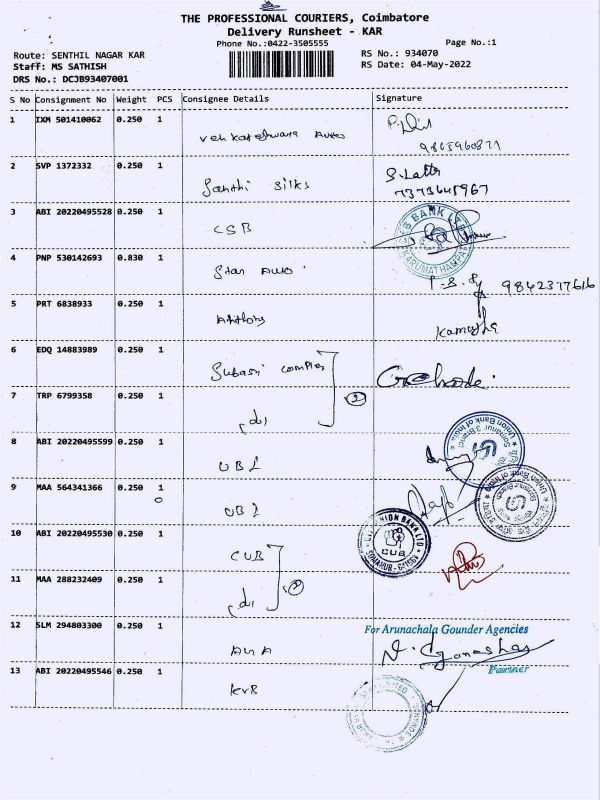 THE PROFESSIONAL COURIERS, Coimbatore
Delivery Runsheet - KAR
Phone No.:0422-3505555
Page No.:1
Route: SENTHIL NAGAR KAR
RS No.: 934070
Staff: MS SATHISH
RS Date: 04-May-2022
DRS No.: DCJB93407001
S No Consignment No Weight PCS Consignee Details Signature
1 IXM 501410062 0.250 1
Venkateshwara Auto
2 SVP 1372332 0.250 1
Santhi Silks
S. Latha
7373645967
3 ABI 20220495528 0.250 1
CSB
CSB BANK
KARUMATHAMPATTI
4 PNP 530142693 0.830 1
Star Auto
9842377616
5 PRT 6838933 0.250 1
Anthony
6 EDQ 14883989 0.250 1
Subasri Complex
7 TRP 6799358 0.250 1
2
8 ABI 20220495599 0.250 1
UBI
Union Bank of India
Somanur Branch
9 MAA 564341366 0.250 1
0
UBI
Union Bank of India
10 ABI 20220495530 0.250 1
CUB
CITY UNION BANK LTD
CUB
SOMANUR
11 MAA 288232409 0.250 1
2
12 SLM 294803300 0.250 1
AGA
For Arunachala Gounder Agencies
Partner
13 ABI 20220495546 0.250 1
KVB